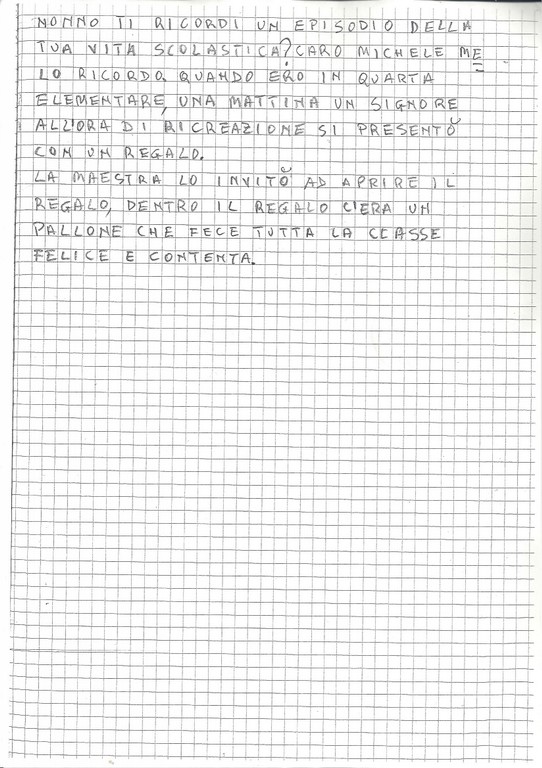 NONNO TI RICORDI UN EPISODIO DELLA
TUA VITA SCOLASTICA? CARO MICHELE ME
LO RICORDO, QUANDO ERO IN QUARTA
ELEMENTARE, UNA MATTINA UN SIGNORE
ALL'ORA DI RICREAZIONE SI PRESENTÒ
CON UN REGALO.
LA MAESTRA LO INVITÒ AD APRIRE IL
REGALO, DENTRO IL REGALO C'ERA UN
PALLONE CHE FECE TUTTA LA CLASSE
FELICE E CONTENTA.